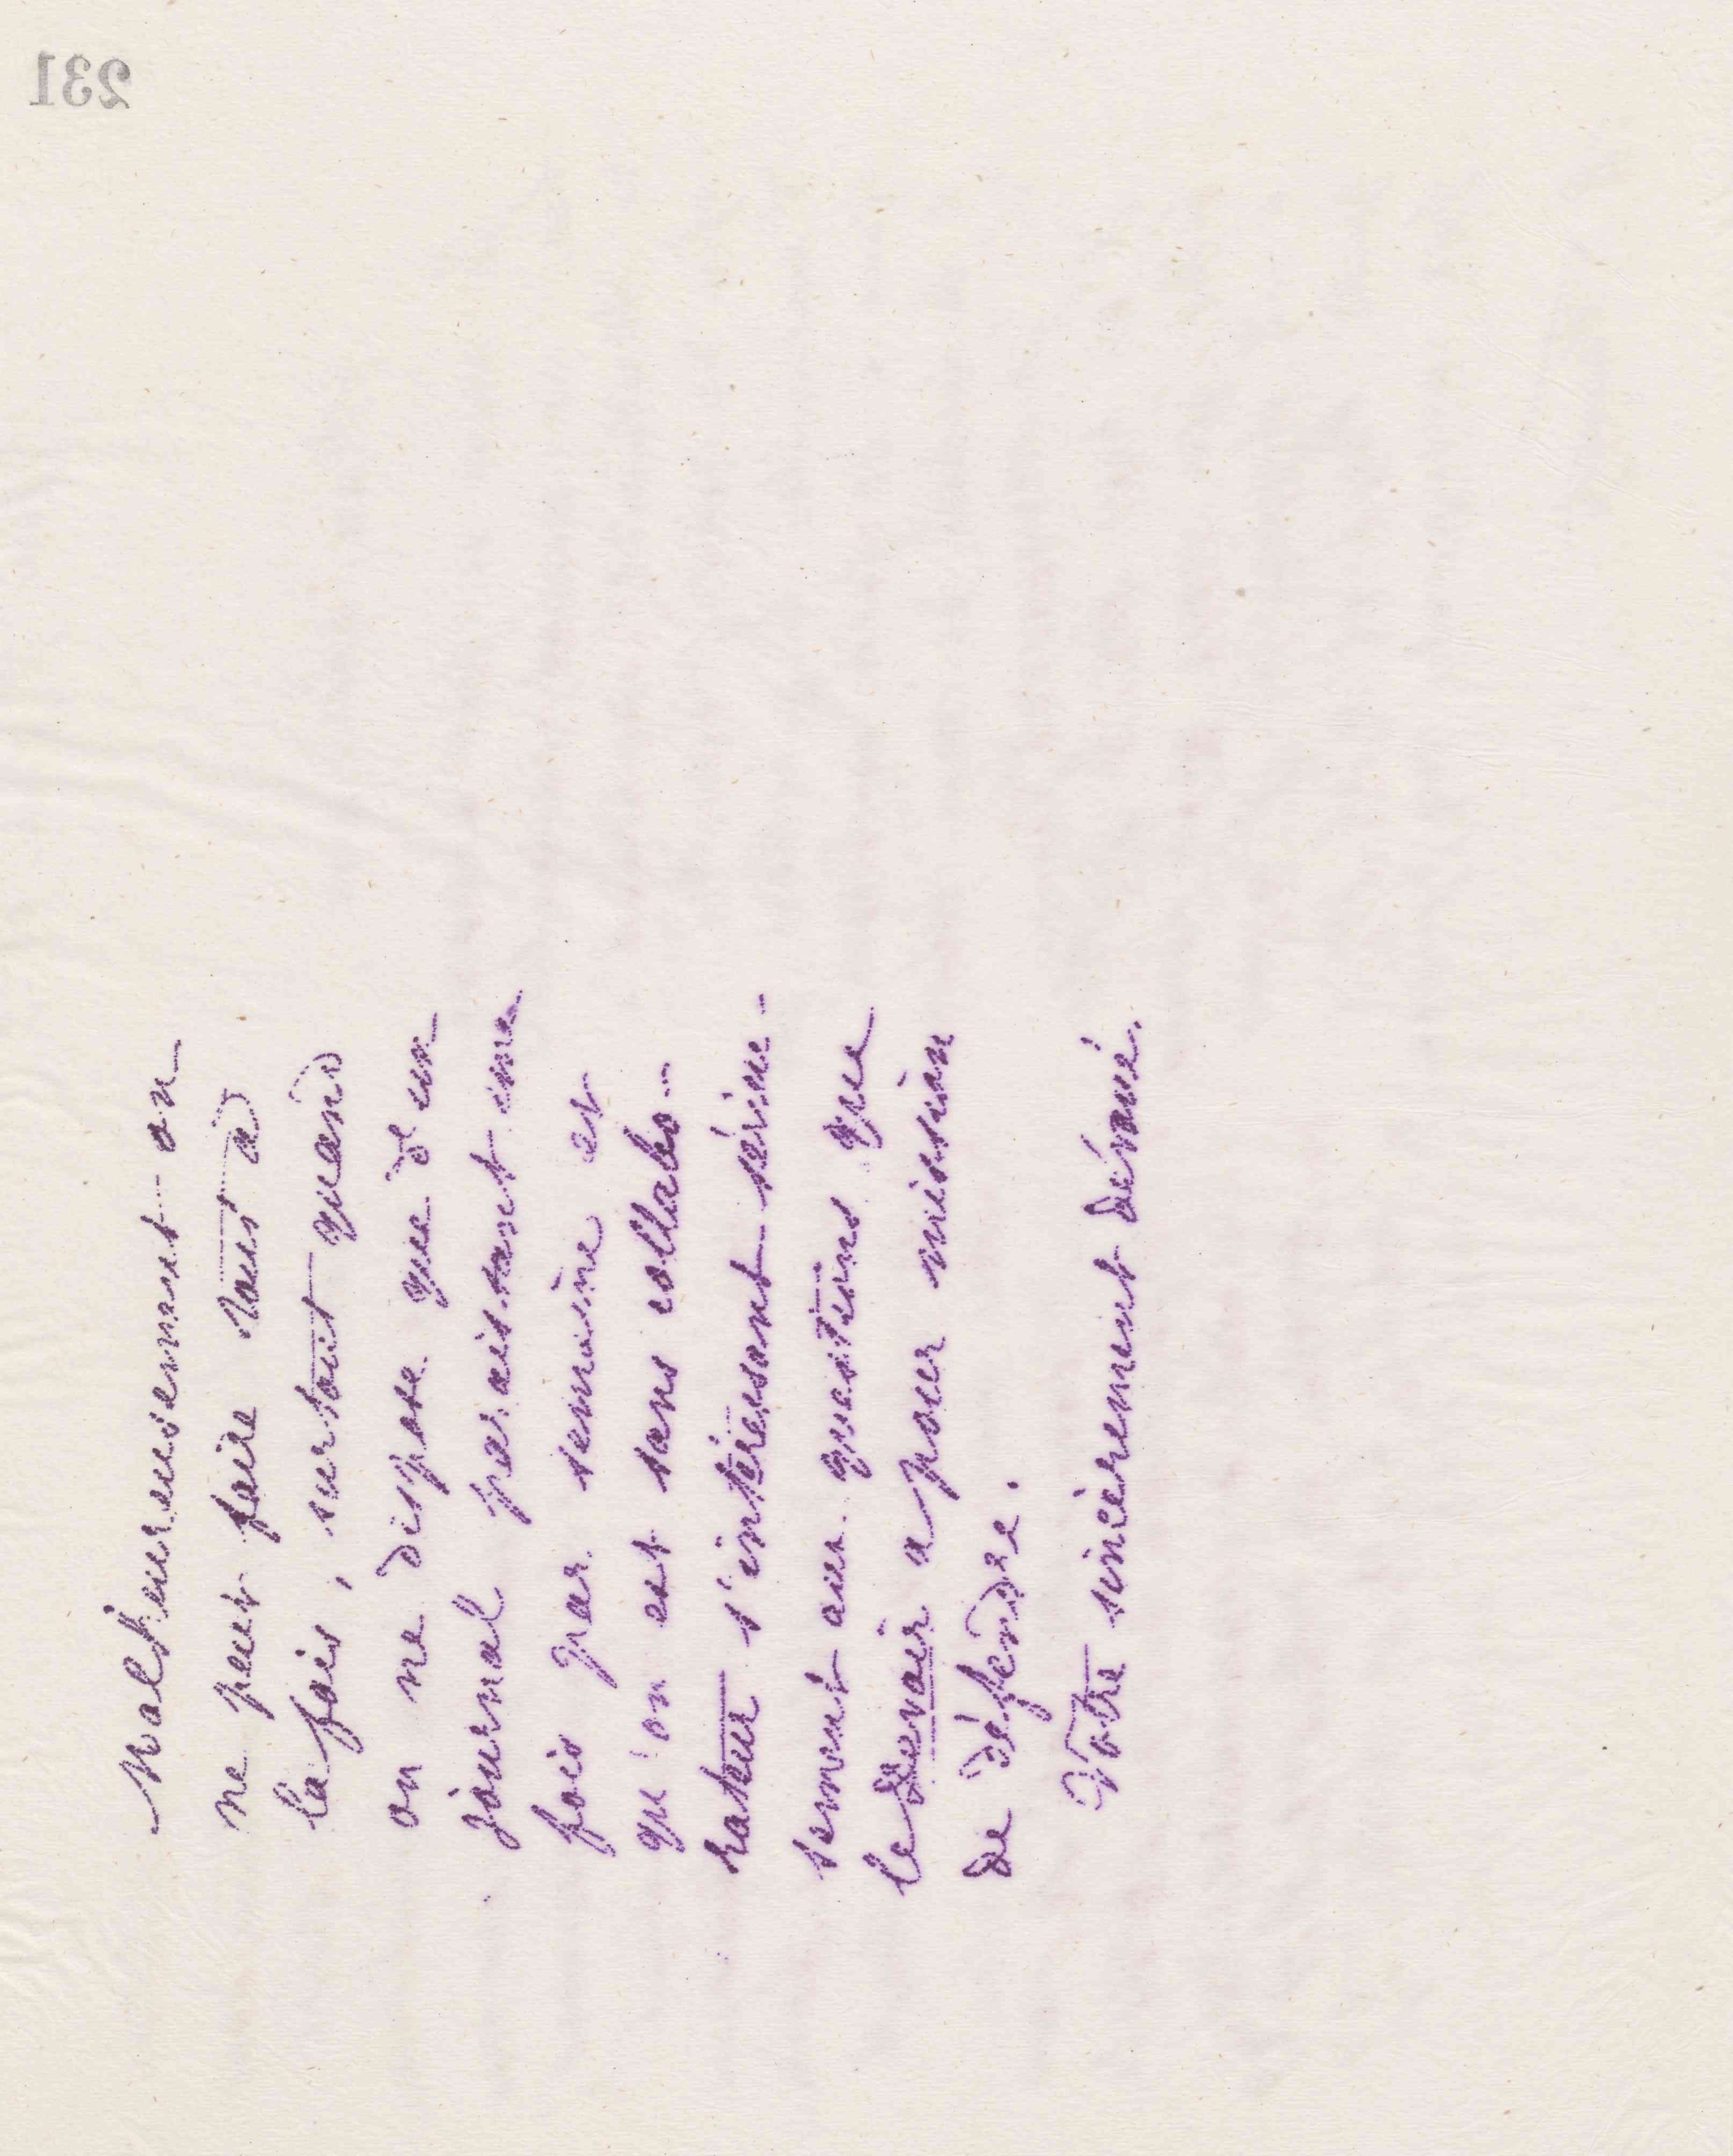 231
Malheureusement on
ne peut faire tout à
la fois, surtout quand
on ne dispose que d'un
journal paraissant une
fois par semaine et
qu'on est sans collabo-
rateur s'intéressant sérieu-
sement aux questions que
le Devoir a pour mission
de défendre.
Votre sincèrement dévoué.